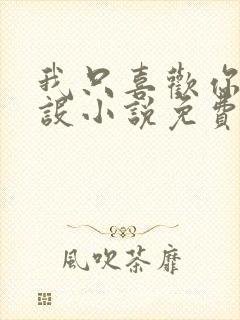 我只喜歡你
設小說免費
風吹荼靡